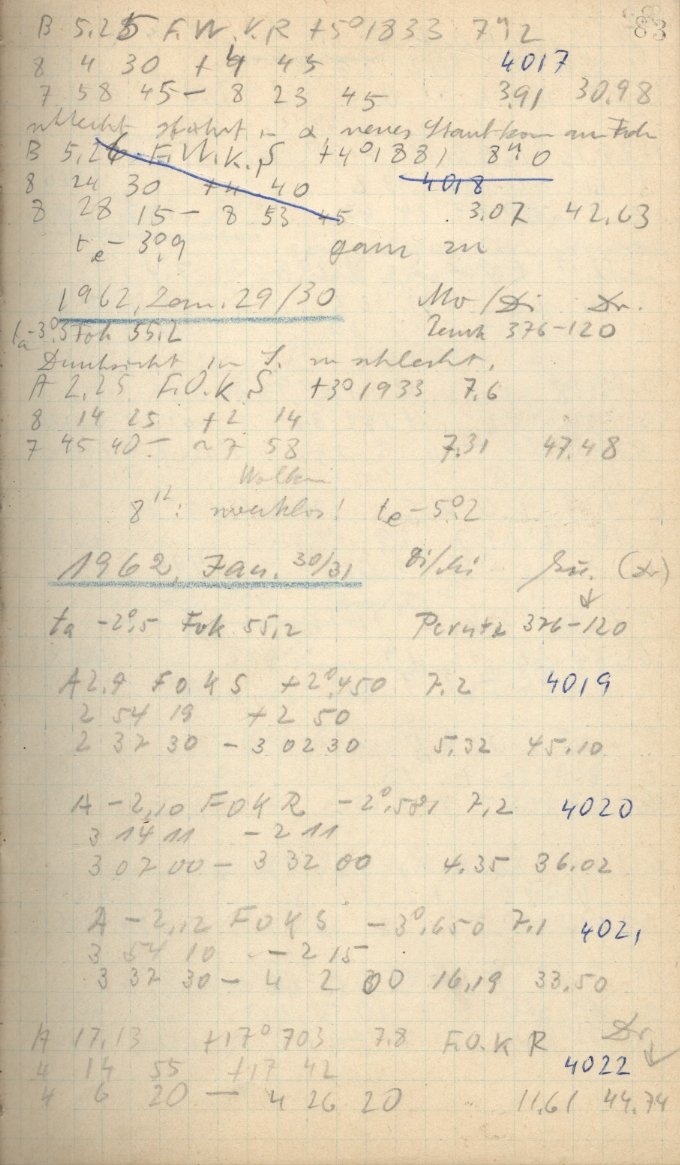 83
B 5,25 F.W.K.R +5°1833 7m2
8 4 30 +4 45 4017
7 58 45 – 8 23 45 3,91 30,98
schlecht in α, neues
B 5,26 F.W.K.S +4°1881 8m0
8 24 30 +4 40 4018
8 28 15 – 8 53 45 3.07 42.63
te – 3°,9 ganz zu
1962, Jan. 29/30 Mo/Di Dr.
ta -3°,3 Fok 55,2 376-120
in S. schlecht.
A 2,25 F.O.K.S +3°1933 7,6
8 14 25 +2 14
7 45 40 – ~7 58 7.31 47.48
Wolken
8 12: zwecklos! te -5°,2
1962, Jan. 30/31 Di/Mi (Dr)
ta -2°,5 Fok 55,2 Perutz 376-120
A 2,9 F O K S +2°,450 7,2 4019
2 54 19 +2 50
2 37 30 – 3 02 30 5,32 45.10
A – 2,10 F O K R –2°,581 7,2 4020
3 14 11 – 2 11
3 07 00 – 3 32 00 4.35 36.02
A – 2,12 F O K S –3°,650 7,1 4021
3 54 10 – 2 15
3 37 30 – 4 2 00 16,19 33.50
A 17,13 +17°703 7.8 F.O.K R Dr.
4 14 55 +17 42 4022
4 6 20 – 4 26 20 11,61 44.74